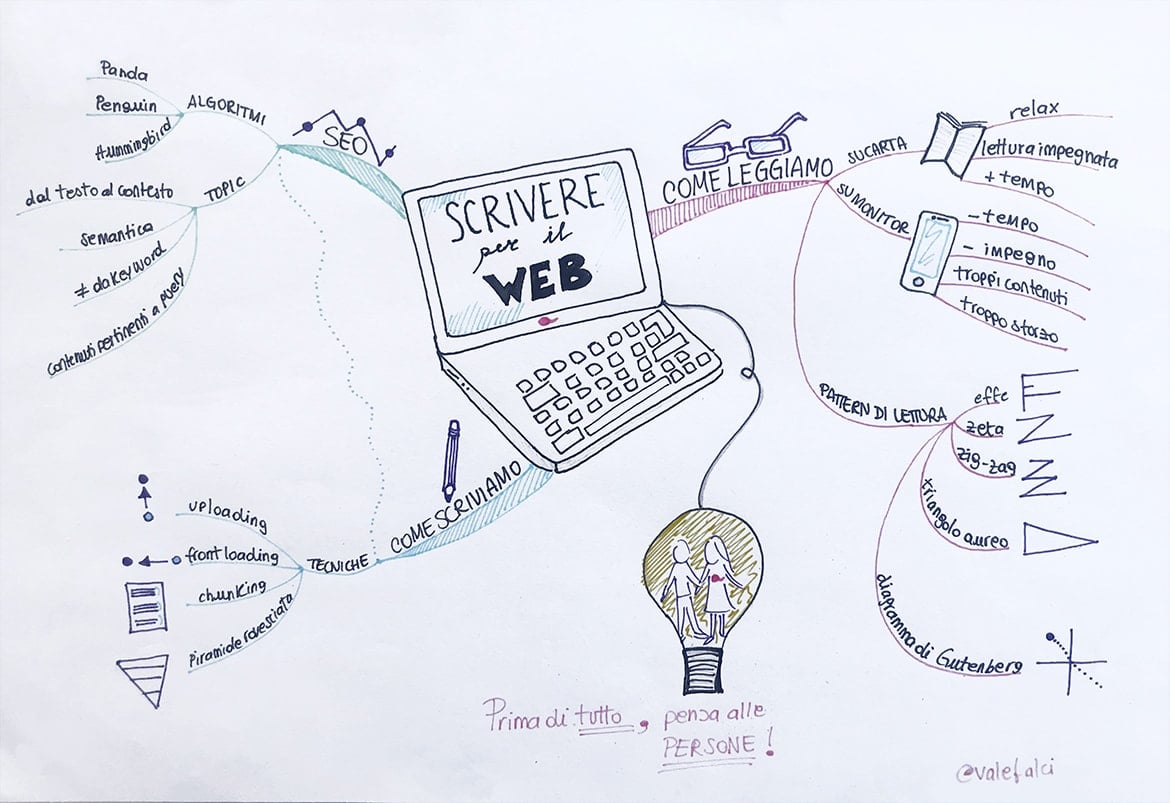 SCRIVERE
per il
WEB
SEO
ALGORITMI
Panda
Penguin
Hummingbird
TOPIC
dal testo al contesto
semantica
≠ da keyword
contenuti pertinenti a query
COME LEGGIAMO
SU CARTA
relax
lettura impegnata
+ tempo
SU MONITOR
- tempo
- impegno
troppi contenuti
troppo sforzo
PATTERN DI LETTURA
effe
zeta
zig-zag
triangolo aureo
diagramma di Gutenberg
COME SCRIVIAMO
TECNICHE
uploading
front loading
chunking
piramide rovesciata
Prima di tutto, pensa alle
PERSONE!
@valefalci